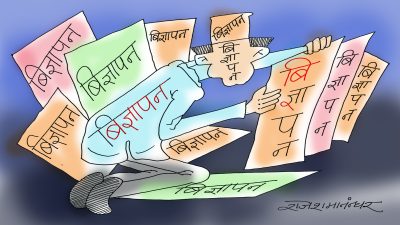 बिज्ञापन
बिज्ञापन
बिज्ञापन
बिज्ञापन
बिज्ञापन
बिज्ञापन
बिज्ञापन
बिज्ञापन
बिज्ञापन
बिज्ञापन
बिज्ञापन
बिज्ञापन
बिज्ञापन
राजेशमानन्धर